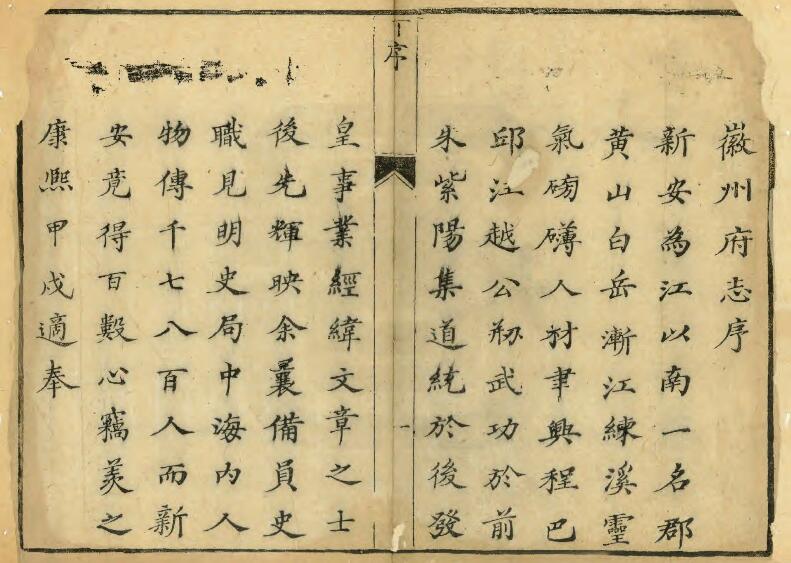 徽州府志序
新安為江以南一名郡
黃山白岳漸江練溪靈
氣磅礴人材聿興程巴
邱江越公剏武功於前
朱紫陽集道統於後發
序
一
皇事業經緯文章之士
後先輝映余曩備員史
職見明史局中海內人
物傳千七八百人而新
安竟得百數心竊羨之
康熙甲戌適奉